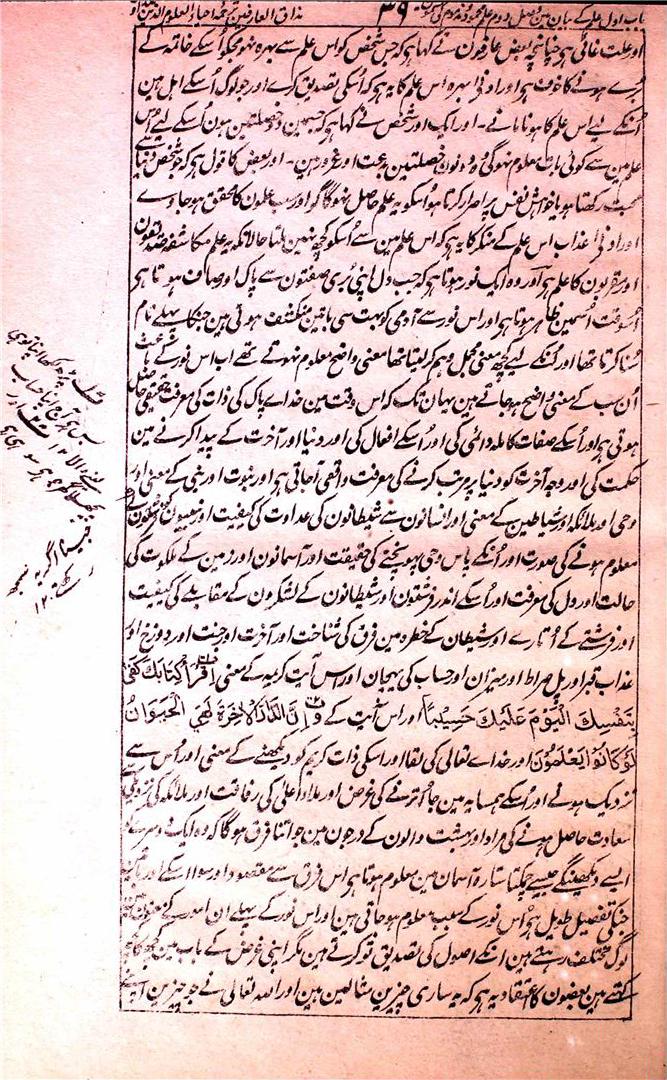 باب اول علم کے بیان مین فصل دوم علم محمود و مذموم کی ۳۹ مذاق العارفین ترجمہ احیاء العلوم الدین جلد
اور علت غائی ہی چنانچہ بعض عارفون نے کہا ہی کہ جس شخص کو اس علم سے بہرہ نہو مجکو اُسکے خاتمہ کے
بُرے ہونے کا خوف ہی اور ادنیٰ بہرہ اس علم کا یہ ہی کہ اُسکی تصدیق کرے اور جو لوگ اُسکے اہل ہین
اُنکے لیے اس علم کا ہونا مانے۔ اور ایک اور شخص نے کہا ہی کہ جسمین دو خصلتین ہون اُسکے لیے اس
علم مین سے کوئی بات معلوم نہوگی وہ دونون خصلتین بدعت اور غرور ہین۔ اور بعض کا قول ہی کہ جو شخص دنیا سے
محبت رکھتا ہو یا خواہش نفس پر اصرار کرتا ہو اُسکو یہ علم حاصل نہوگا گو اور سب علمون کا محقق ہو جاوے
اور ادنیٰ عذاب اس علم کے منکر کا یہ ہی کہ اس علم مین سے اُسکو کچھ نہین ملتا حالانکہ یہ علم مکاشفہ صدیقون
اور مقربون کا علم ہی اور وہ ایک نور ہوتا ہی کہ جب دل اپنی بُری صفتون سے پاک اور صاف ہوتا ہی
اُسوقت اُسمین ظاہر ہوتا ہی اور اس نور سے آدمی کو بہت سی باتین منکشف ہوتی ہین جنکا پہلے نام
سُنا کرتا تھا اور اُنکے لیے کچھ معنی مجمل وہم کر لیتا تھا معنی واضح معلوم نہوتے تھے اب اس نور کے باعث
اُن سب کے معنی واضح ہو جاتے ہین یہان تک کہ اس وقت مین خداے پاک کی ذات کی معرفت حقیقی حاصل
ہوتی ہی اور اُسکے صفات کاملہ دائمی کی اور اُسکے افعال کی اور دنیا اور آخرت کے پیدا کرنے مین
حکمت کی اور وجہ آخرت کو دنیا پر مرتب کرنے کی معرفت واقعی آجاتی ہی اور نبوت اور نبی کے معنی اور
وحی اور ملائکہ اور شیاطین کے معنی اور انسانون سے شیطانون کی عداوت کی کیفیت اور نبیون کو فرشتون
معلوم ہونے کی صورت اور اُنکے پاس وحی پہونچنے کی حقیقت اور آسمانون اور زمین کے ملکوت کی
حالت اور دل کی معرفت اور اُسکے اندر فرشتون اور شیطانون کے لشکرون کے مقابلے کی کیفیت
اور فرشتے کے اُتارے اور شیطان کے خطرہ مین فرق کی شناخت اور آخرت اور جنت اور دوزخ اور
عذاب قبر اور پل صراط اور میزان اور حساب کی پہچان اور اس آیت کریمہ کے معنی اِقْرَأْ كِتَابَكَ كَفٰى
بِنَفْسِكَ الْيَوْمَ عَلَيْكَ حَسِيْبًا اور اس آیت کے وَاِنَّ الدَّارَ الْاٰخِرَةَ لَهِيَ الْحَيَوَانُ
لَوْ كَانُوْا يَعْلَمُوْنَ اور خداے تعالی کی لقا اور اسکی ذات کریم کو دیکھنے کے معنی اور اُس سے
نزدیک ہونے اور اُسکے ہمسایہ مین جا اُترنے کی غرض اور ملاء اعلیٰ کی رفاقت اور ملائکہ کی نزدیکی
سعادت حاصل ہونے کی مراد اور بہشت والون کے درجون مین جو اتنا فرق ہوگا کہ وہ ایک دوسرے کو
ایسے دیکھینگے جیسے چمکتا ستارہ آسمان مین معلوم ہوتا ہی اس فرق سے مقصود اور سوا اسکے اور
جنکی تفصیل طویل ہی اس نور کے سبب معلوم ہو جاتی ہین اور اس نور کے پہلے ان امور کے معنون مین
لوگ مختلف رہتے ہین انکے اصول کی تصدیق تو کرتے ہین مگر اپنی غرض کے باب مین کچھ کا کچھ
کہتے ہین بعضون کا اعتقاد یہ ہی کہ یہ ساری چیزین مثالین ہین اور اللہ تعالی نے جو چیزین اپنے